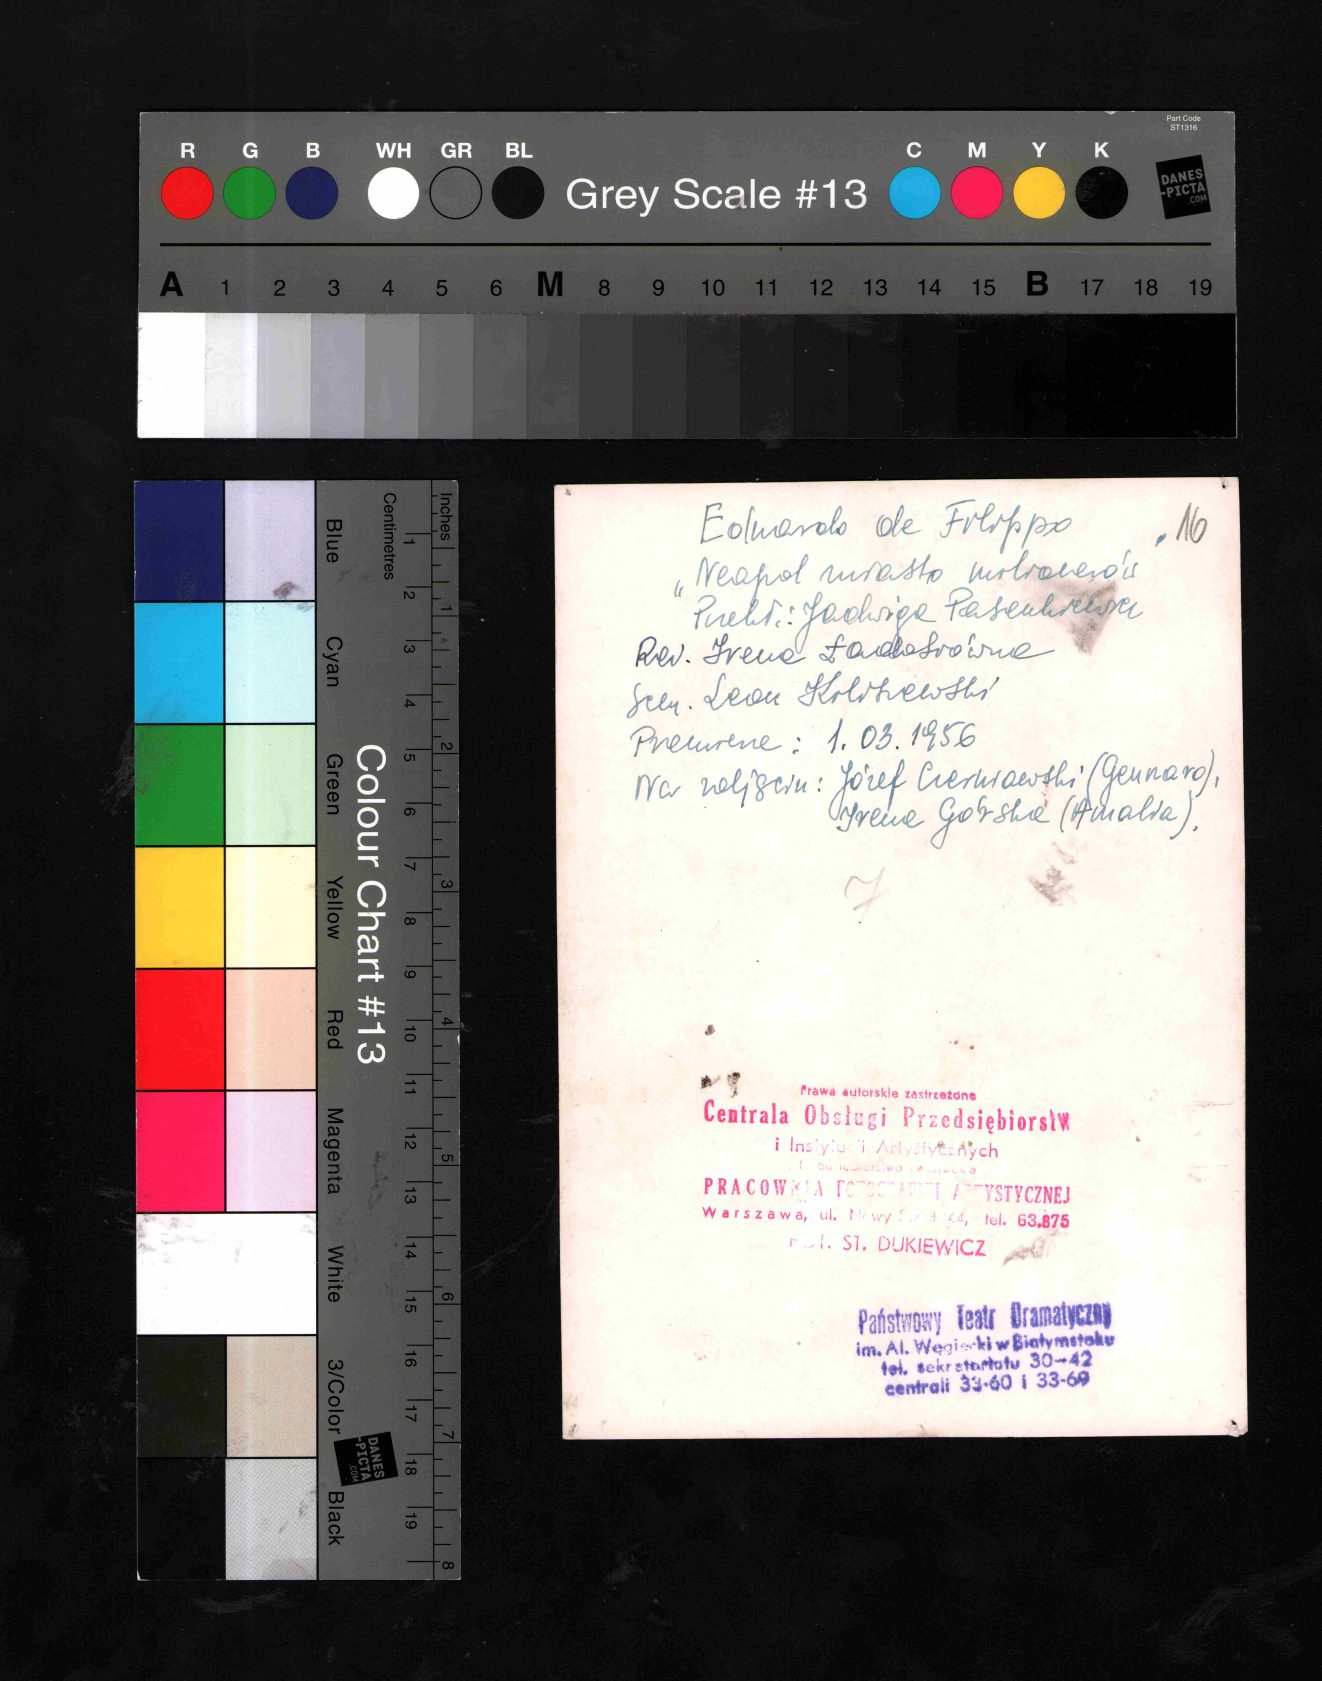 Part Code
ST1316
R G B WH GR BL Grey Scale #13 C M Y K
DANES
-PICTA
.COM
A 1 2 3 4 5 6 M 8 9 10 11 12 13 14 15 B 17 18 19
Colour Chart #13
Blue
Cyan
Green
Yellow
Red
Magenta
White
3/Color
Black
Centimetres
1 2 3 4 5 6 7 8 9 10 11 12 13 14 15 16 17 18 19
Inches
1 2 3 4 5 6 7 8
DANES
-PICTA
.COM
Eduardo de Filippo 16
„Neapol miasto milionerów
Przekł.: Jadwiga Pasenkiewicz
Reż. Irena Ładosiówna
Scen. Leon Kołiszewski
Premiera: 1.03.1956
Na zdjęciu: Józef Czerniawski (Gennaro),
Irena Górska (Amalia).
7
Prawa autorskie zastrzeżone
Centrala Obsługi Przedsiębiorstw
i Instytucji Artystycznych
PRACOWNIA FOTOGRAFII ARTYSTYCZNEJ
Warszawa, ul. Nowy 64, tel. 63.875
ST. DUKIEWICZ
Państwowy Teatr Dramatyczny
im. Al. Węgierki w Białymstoku
tel. sekretariatu 30-42
centrali 33-60 i 33-69